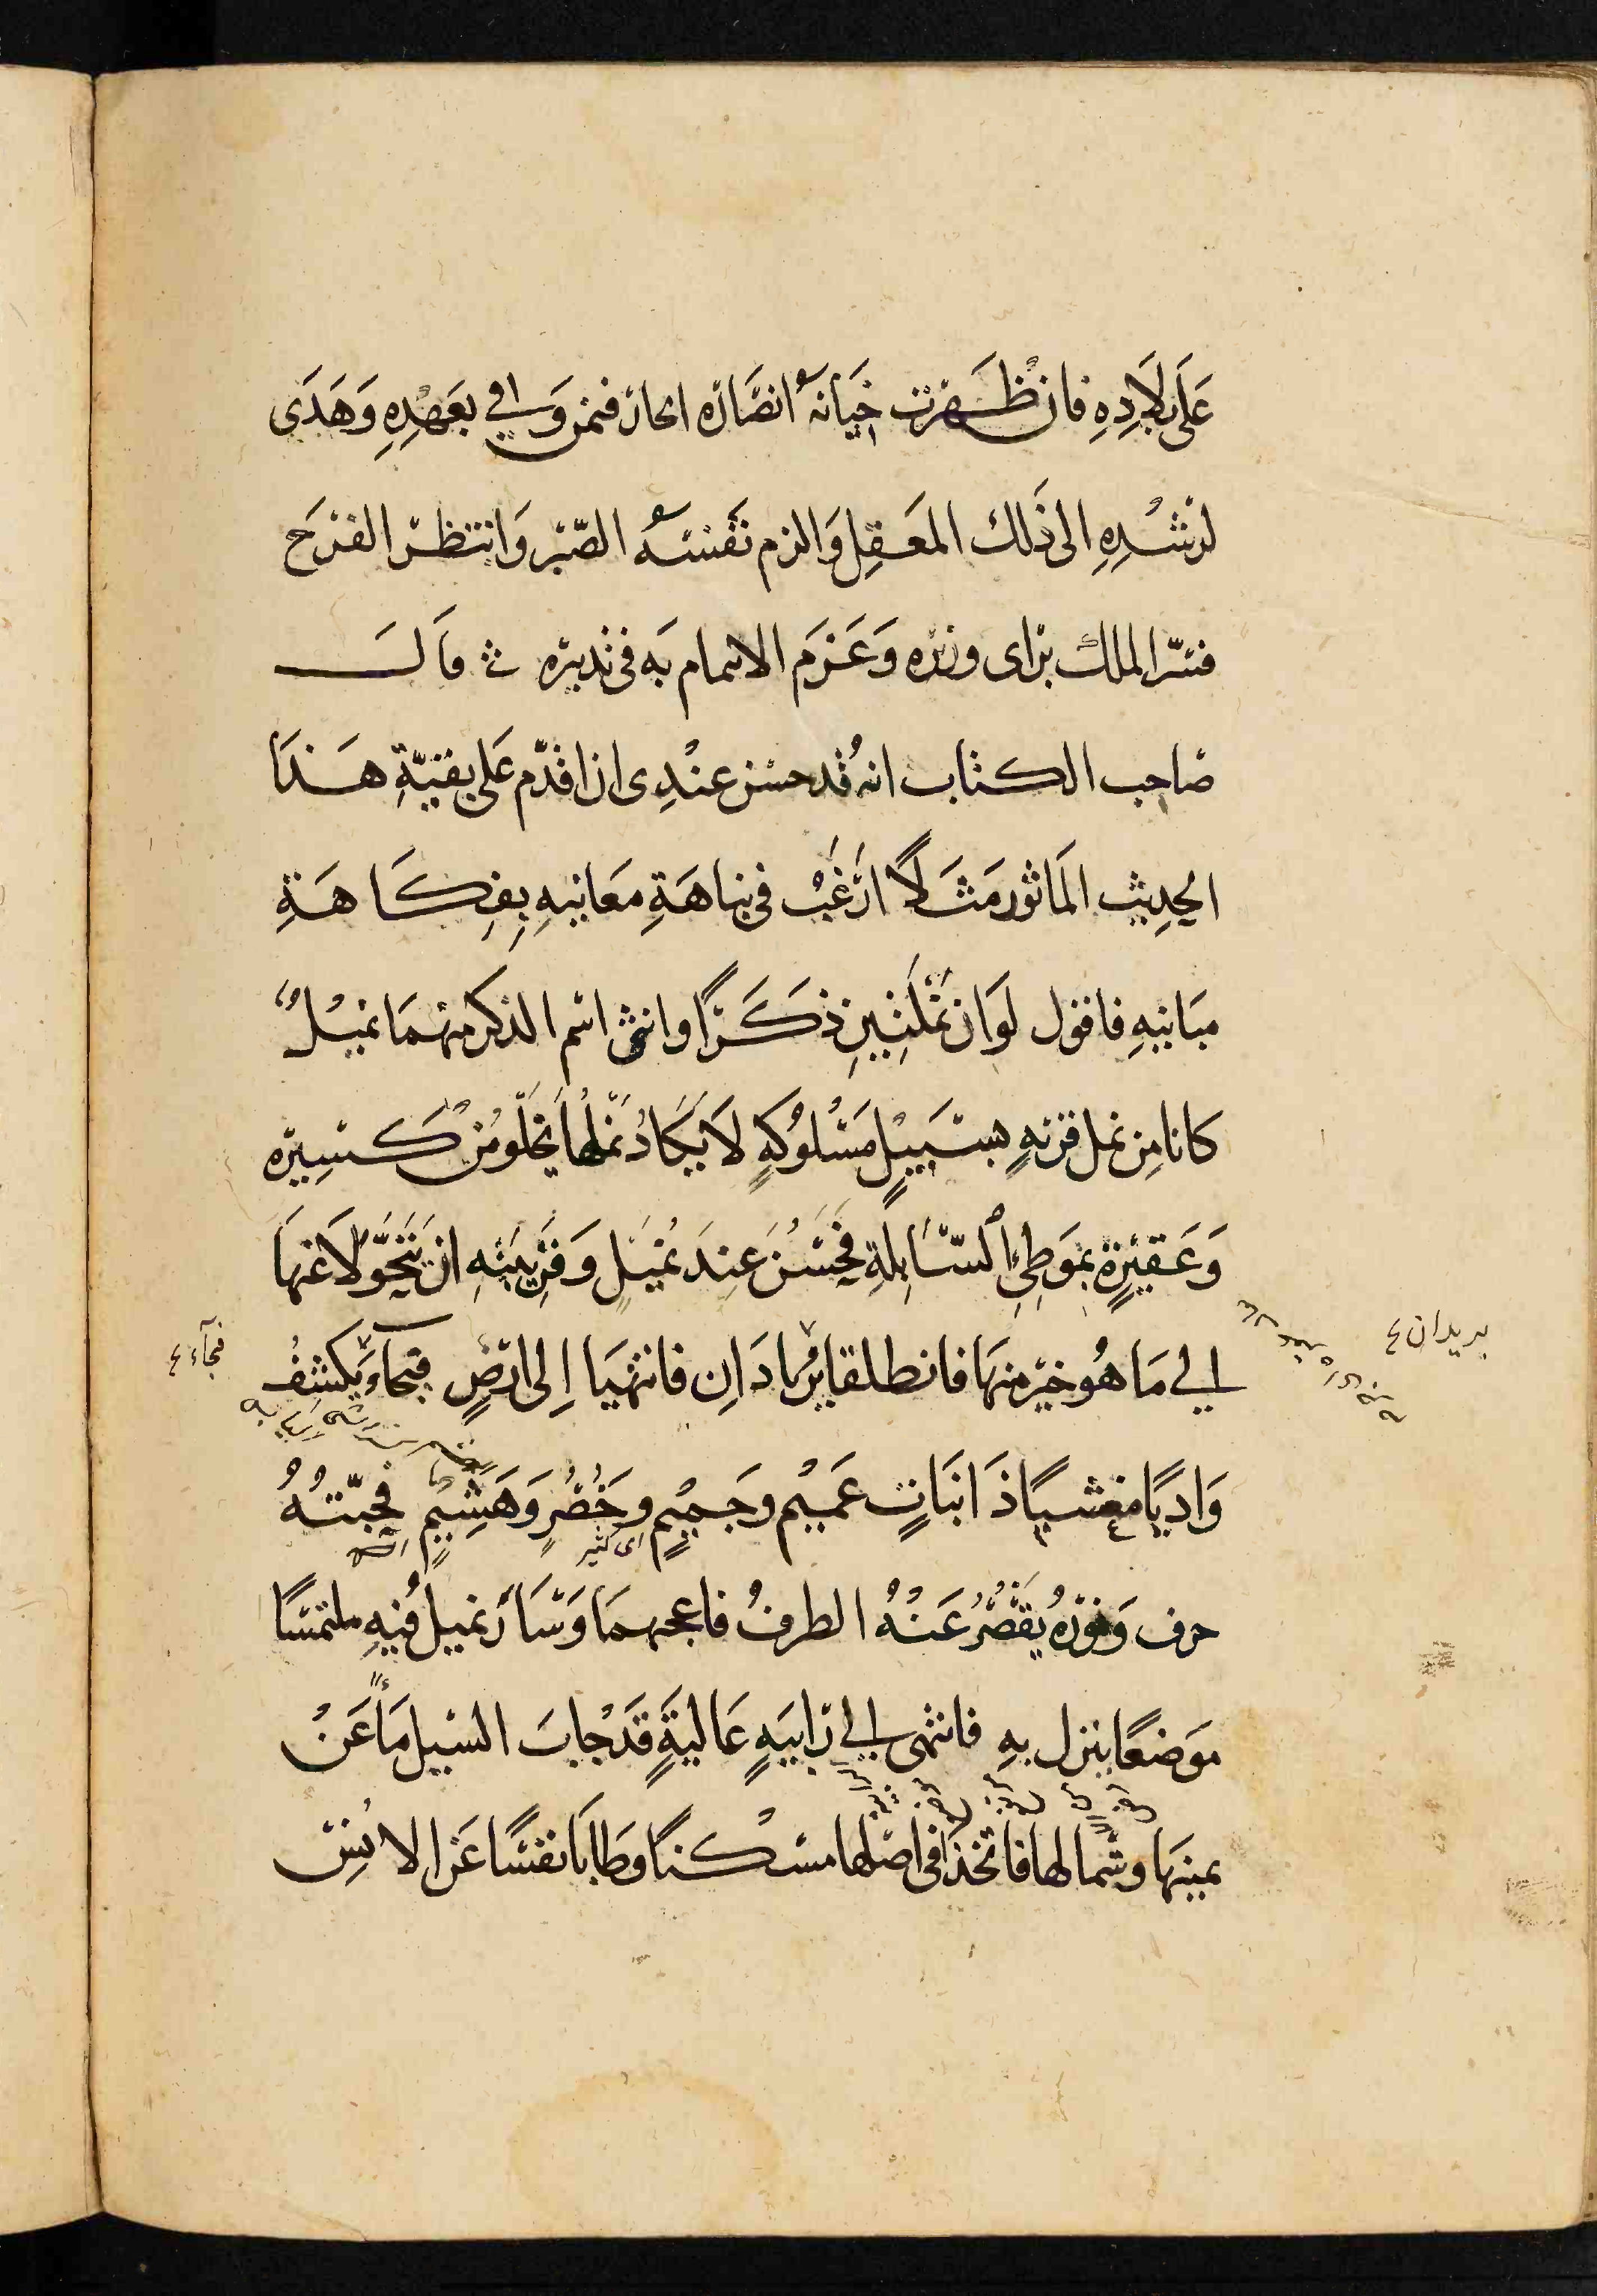 عَلَى بِلَادِهِ فان ظَهَرَت خِيَانَهُ انصَاره انحاز فيمن وَافى بِعَهْدِهِ وَهَدَى
لِرُشْدِهِ الى ذَلك المَعقِل وَالزم نَفسَهُ الصّبر وَانتظر الفَرَج
فسرّ الملك براى وزيره وَعَزَم الاتمام به فى تدبيره قاَلَ
صَاحب الكتاب انه قد حسن عندِى ان اقدّم على بقيّةِ هَذَا
الحديث المَاثور مَثَلًا ارغبُ فى نباهَةِ معَانيهِ بِفِكَاهَةِ
مبَانيهِ فاقول لوَان نَمْلَتَين ذكَرًا وانثى اسم الذكر منهمَا نميْلُ
كانا من نمل قريه بسَبيلٍ مَسْلُوكَةٍ لَا يَكَادُ نَملُها يَخلُو مُن كَسِيرَه
وَعَقيرَةٍ بِمَوطِئِ السَّابِلَةِ فحَسُنَ عِندَ نُمَيلٍ وَقَرِينَتِهِ ان يَتَحَوَّلَا عَنهَا
الى مَا هُو خير منهَا فانطلقا يُرْتادَانِ فانتهيَا اِلى ارضٍ فيحاَء يكشفُ
يريدان ٤
فجآء ٤
وَاديًا معشبًا ذَا نبَاتٍ عَمِيْمٍ وجَمِيْمٍ وخُضُرٍ وَهَشِيْمٍ فجبّتهُ
اى كثير
حرف وَغورهُ يَقصُرُ عَنهُ الطرفُ فاعجبهمَا وَسَارَ نميل فيهِ ملتمسًا
موَضعًا ينزل بهِ فانتهى الى رَابيَهٍ عَاليَةٍ قَدْ جابَ السّيل مَآءً عَنْ
يمينهَا وشمالها فاتخذا فى اصلها مسْكنًا وطَابَا نفسًا عَن الانِسْ